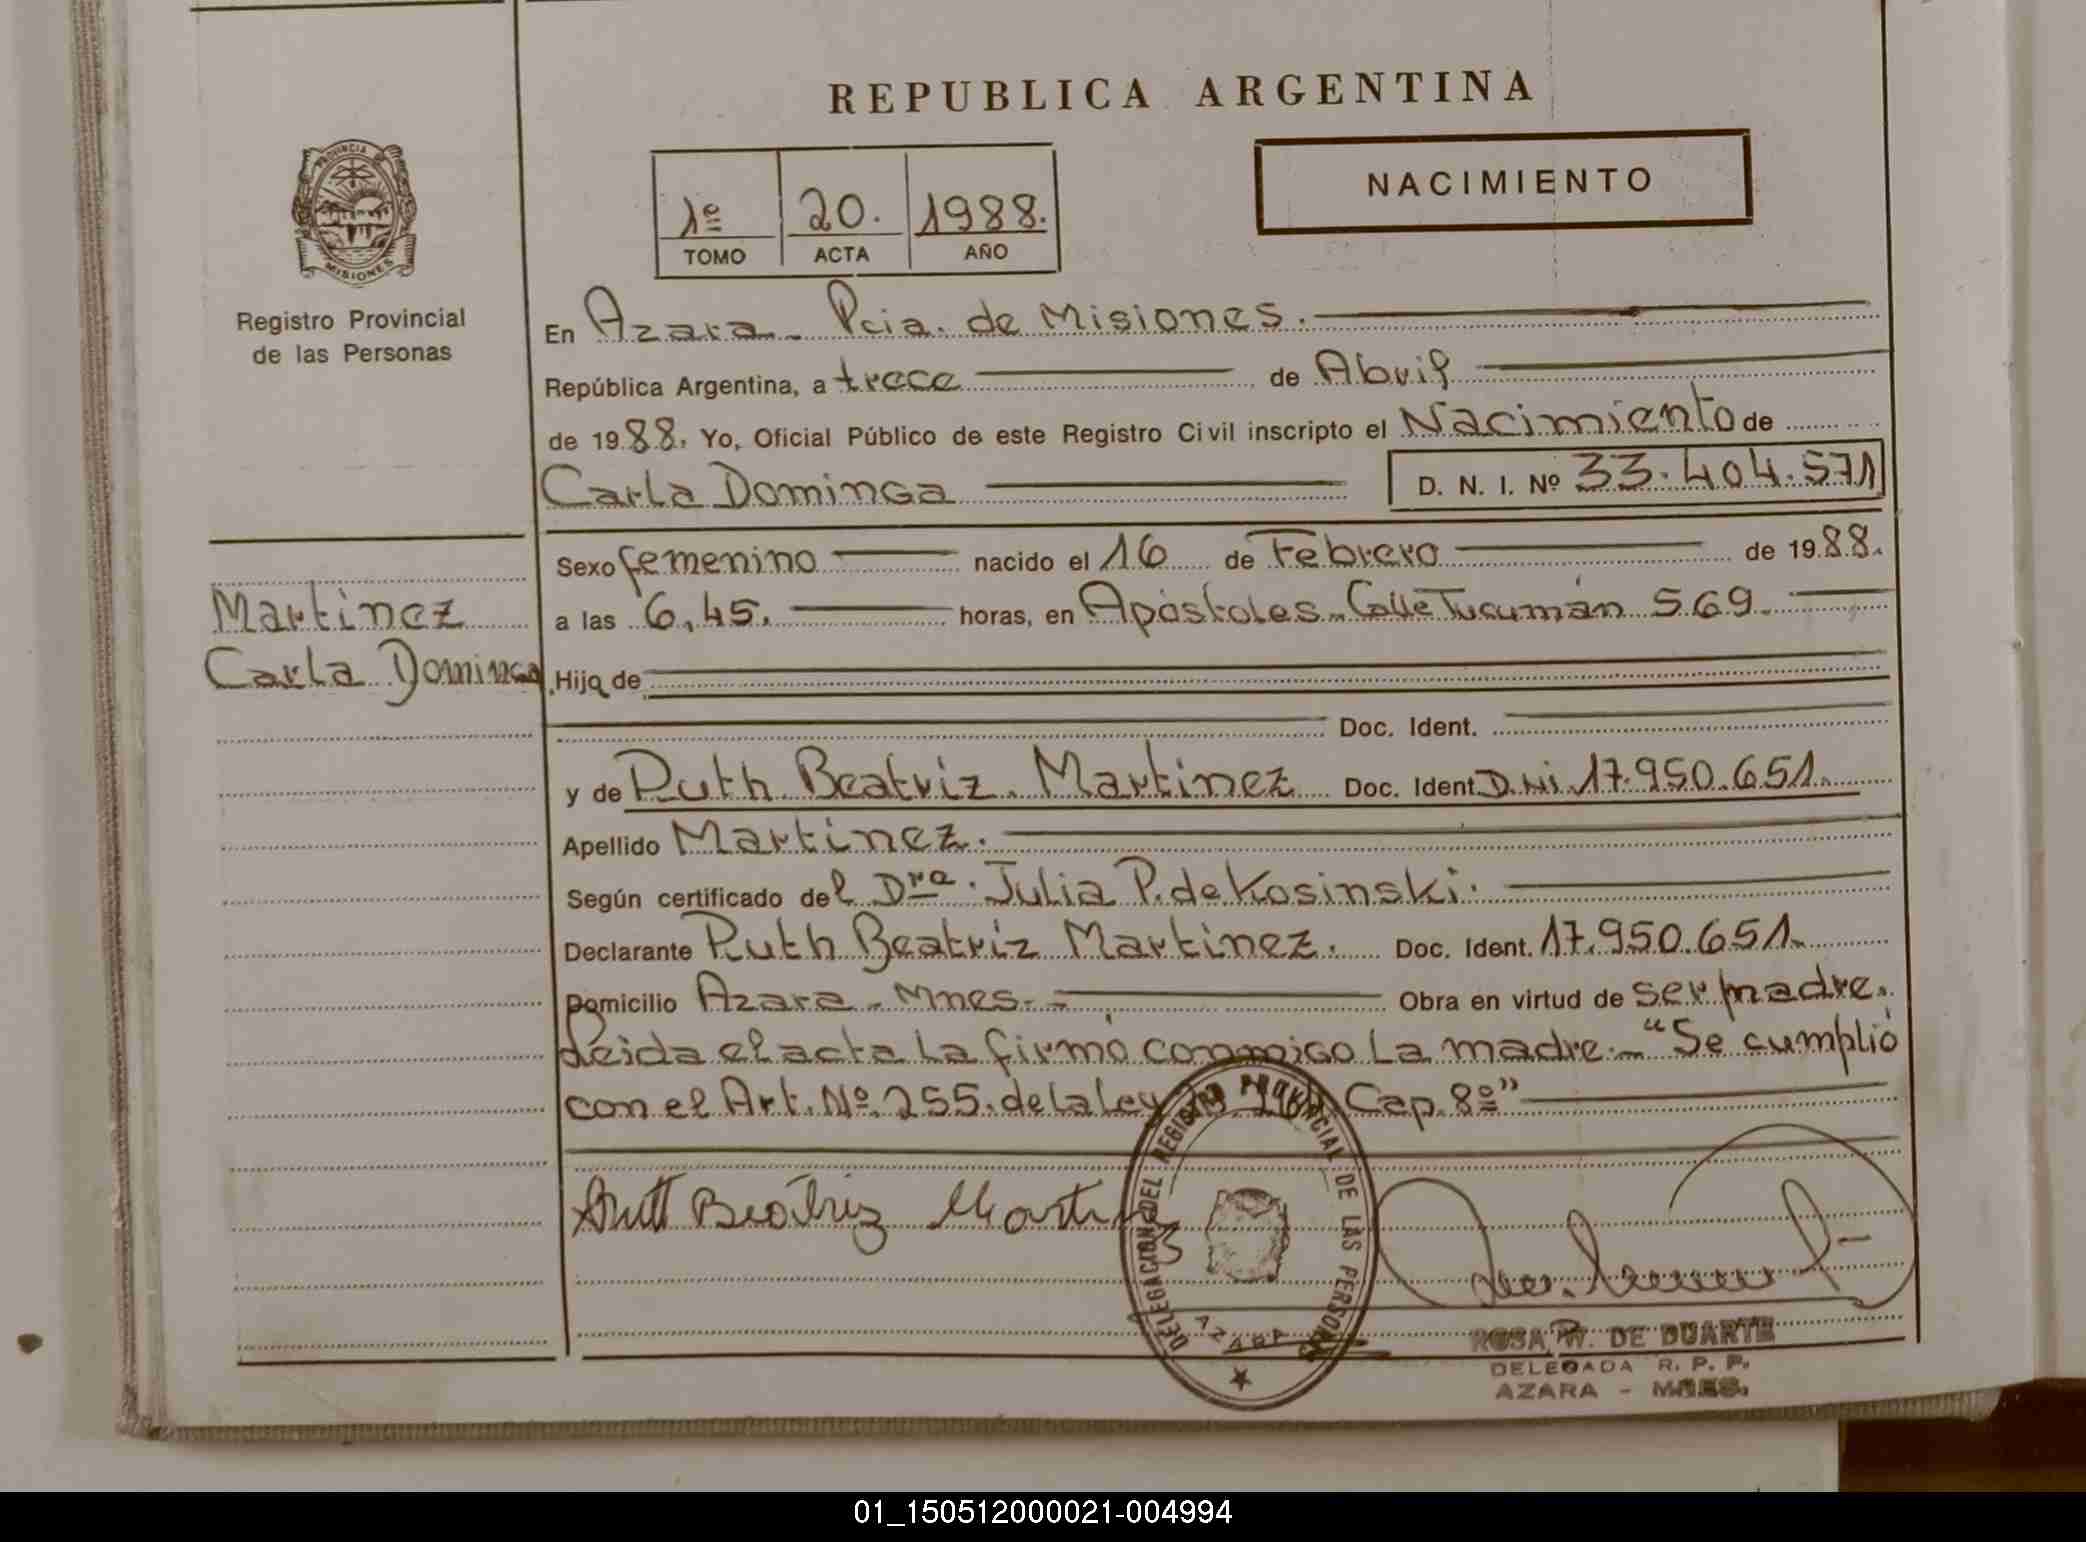 REPUBLICA ARGENTINA
PROVINCIA DE MISIONES
Registro Provincial
de las Personas
1º 20. 1988.
TOMO ACTA AÑO
NACIMIENTO
En Azara - Pcia. de Misiones.
República Argentina, a trece de Abril
de 1988. Yo, Oficial Público de este Registro Civil inscripto el Nacimiento de
Carla Dominga D. N. I. Nº 33.404.571
Sexo femenino nacido el 16 de Febrero de 1988.
a las 6,45. horas, en Apóstoles - Calle Tucumán 569.
Martinez
Carla Dominga
Hija de
Doc. Ident.
y de Ruth Beatriz Martinez Doc. Ident. D.Ni. 17.950.651.
Apellido Martinez.
Según certificado del Dra. Julia P. de Kosinski.
Declarante Ruth Beatriz Martinez. Doc. Ident. 17.950.651.
Domicilio Azara - Mnes. - Obra en virtud de ser madre.
Leida el acta la firmó conmigo la madre. - "Se cumplió
con el Art. Nº 255. de la ley Cap. 8º"
Ruth Beatriz Martinez
DELEGACION DEL REGISTRO PROVINCIAL DE LAS PERSONAS
AZARA
ROSA W. DE DUARTE
DELEGADA R. P. P.
AZARA - MNES.
01_150512000021-004994